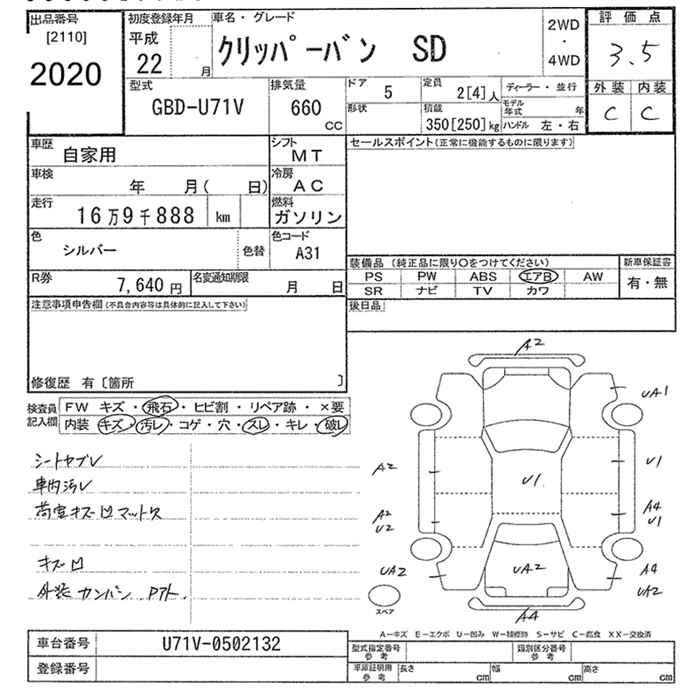 出品番号
[2110]
2020
初度登録年月
平成
22 月
車名・グレード
クリッパーバン SD
2WD
・
4WD
評価点
3.5
外装 内装
C C
型式
GBD-U71V
排気量
660
CC
ドア 5
形状
定員 2[4]人
積載 350[250]kg
ディーラー・並行
モデル年式 年
ハンドル 左・右
車歴 自家用
シフト MT
セールスポイント(正常に機能するものに限ります)
車検 年 月( 日)
冷房 AC
走行 16万9千888 km
燃料 ガソリン
色 シルバー 色替
色コード A31
装備品 (純正品に限り〇をつけてください)
新車保証書
PS PW ABS エアB AW
有・無
SR ナビ TV カワ
R券 7,640円
名変通知期限 月 日
後日品
注意事項申告欄(不具合内容等は具体的に記入して下さい)
修復歴 有〔箇所 〕
検査員記入欄
FW キズ・飛石・ヒビ割・リペア跡・×要
内装 キズ・汚レ・コゲ・穴・スレ・キレ・破レ
シートヤブレ
車内汚レ
荷室キズ凹マットス
キズ凹
外装カンバン アアト
A2
UA1
A2
U1
U1
A2
U2
A4
U1
UA2
UA2
A4
UA2
A4
スペア
A－キズ E－エクボ U－凹み W－補修跡 S－サビ C－腐食 XX－交換済
車台番号 U71V-0502132
登録番号
型式指定番号
参考
類別区分番号
参考
車庫証明用
参考
長さ cm
幅 cm
高さ cm